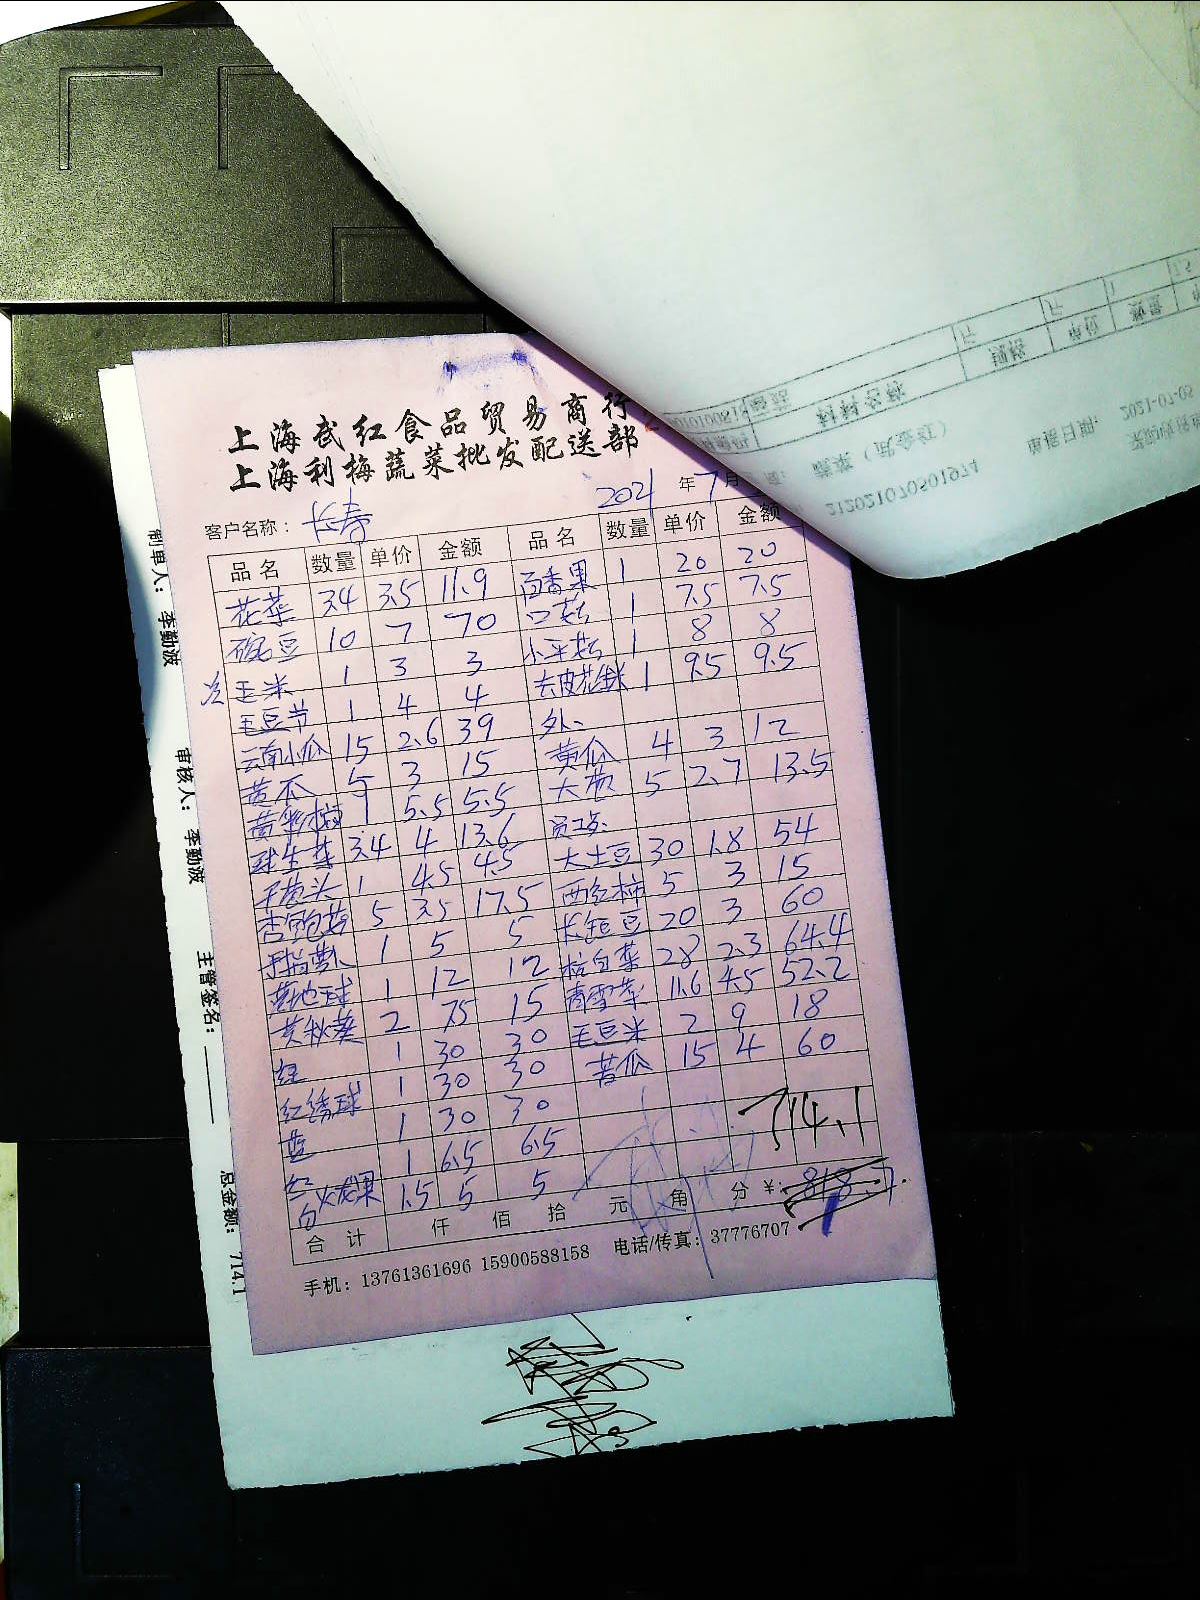 上海武红食品贸易商行
上海利梅蔬菜批发配送部
客户名称： 长寿 2021 年 7 月
品名 数量 单价 金额 品名 数量 单价 金额
花菜 3.4 3.5 11.9 百香果 1 20 20
豌豆 10 7 70 口菇 1 7.5 7.5
玉米 1 3 3 小平菇 1 8 8
毛豆节 1 4 4 去皮花生米 1 9.5 9.5
云南小瓜 15 2.6 39 外：
黄瓜 5 3 15 黄瓜 4 3 12
黄彩椒 1 5.5 5.5 大葱 5 2.7 13.5
球生菜 3.4 4 13.6 员工：
干葱头 1 4.5 4.5 大土豆 30 1.8 54
杏鲍菇 5 3.5 17.5 西红柿 5 3 15
手指萝卜 1 5 5 长豇豆 20 3 60
1 12 12 杭白菜 28 2.3 64.4
黄秋葵 2 7.5 15 11.6 4.5 52.2
红 1 30 30 毛豆米 2 9 18
红绣球 1 30 30 苦瓜 15 4 60
蓝 1 30 30
红 1 6.5 6.5 714.1
白 火龙果 1.5 5 5
合计 仟 佰 拾 元 角 分 ¥: 818.7
手机：13761361696 15900588158 电话/传真：37776707
制单人： 李勤波
审核人： 李勤波
主管签名：
总金额： 714.1
212021070501974
单据日期： 2021-07-05
材料名称
单位
数量
元
元
1